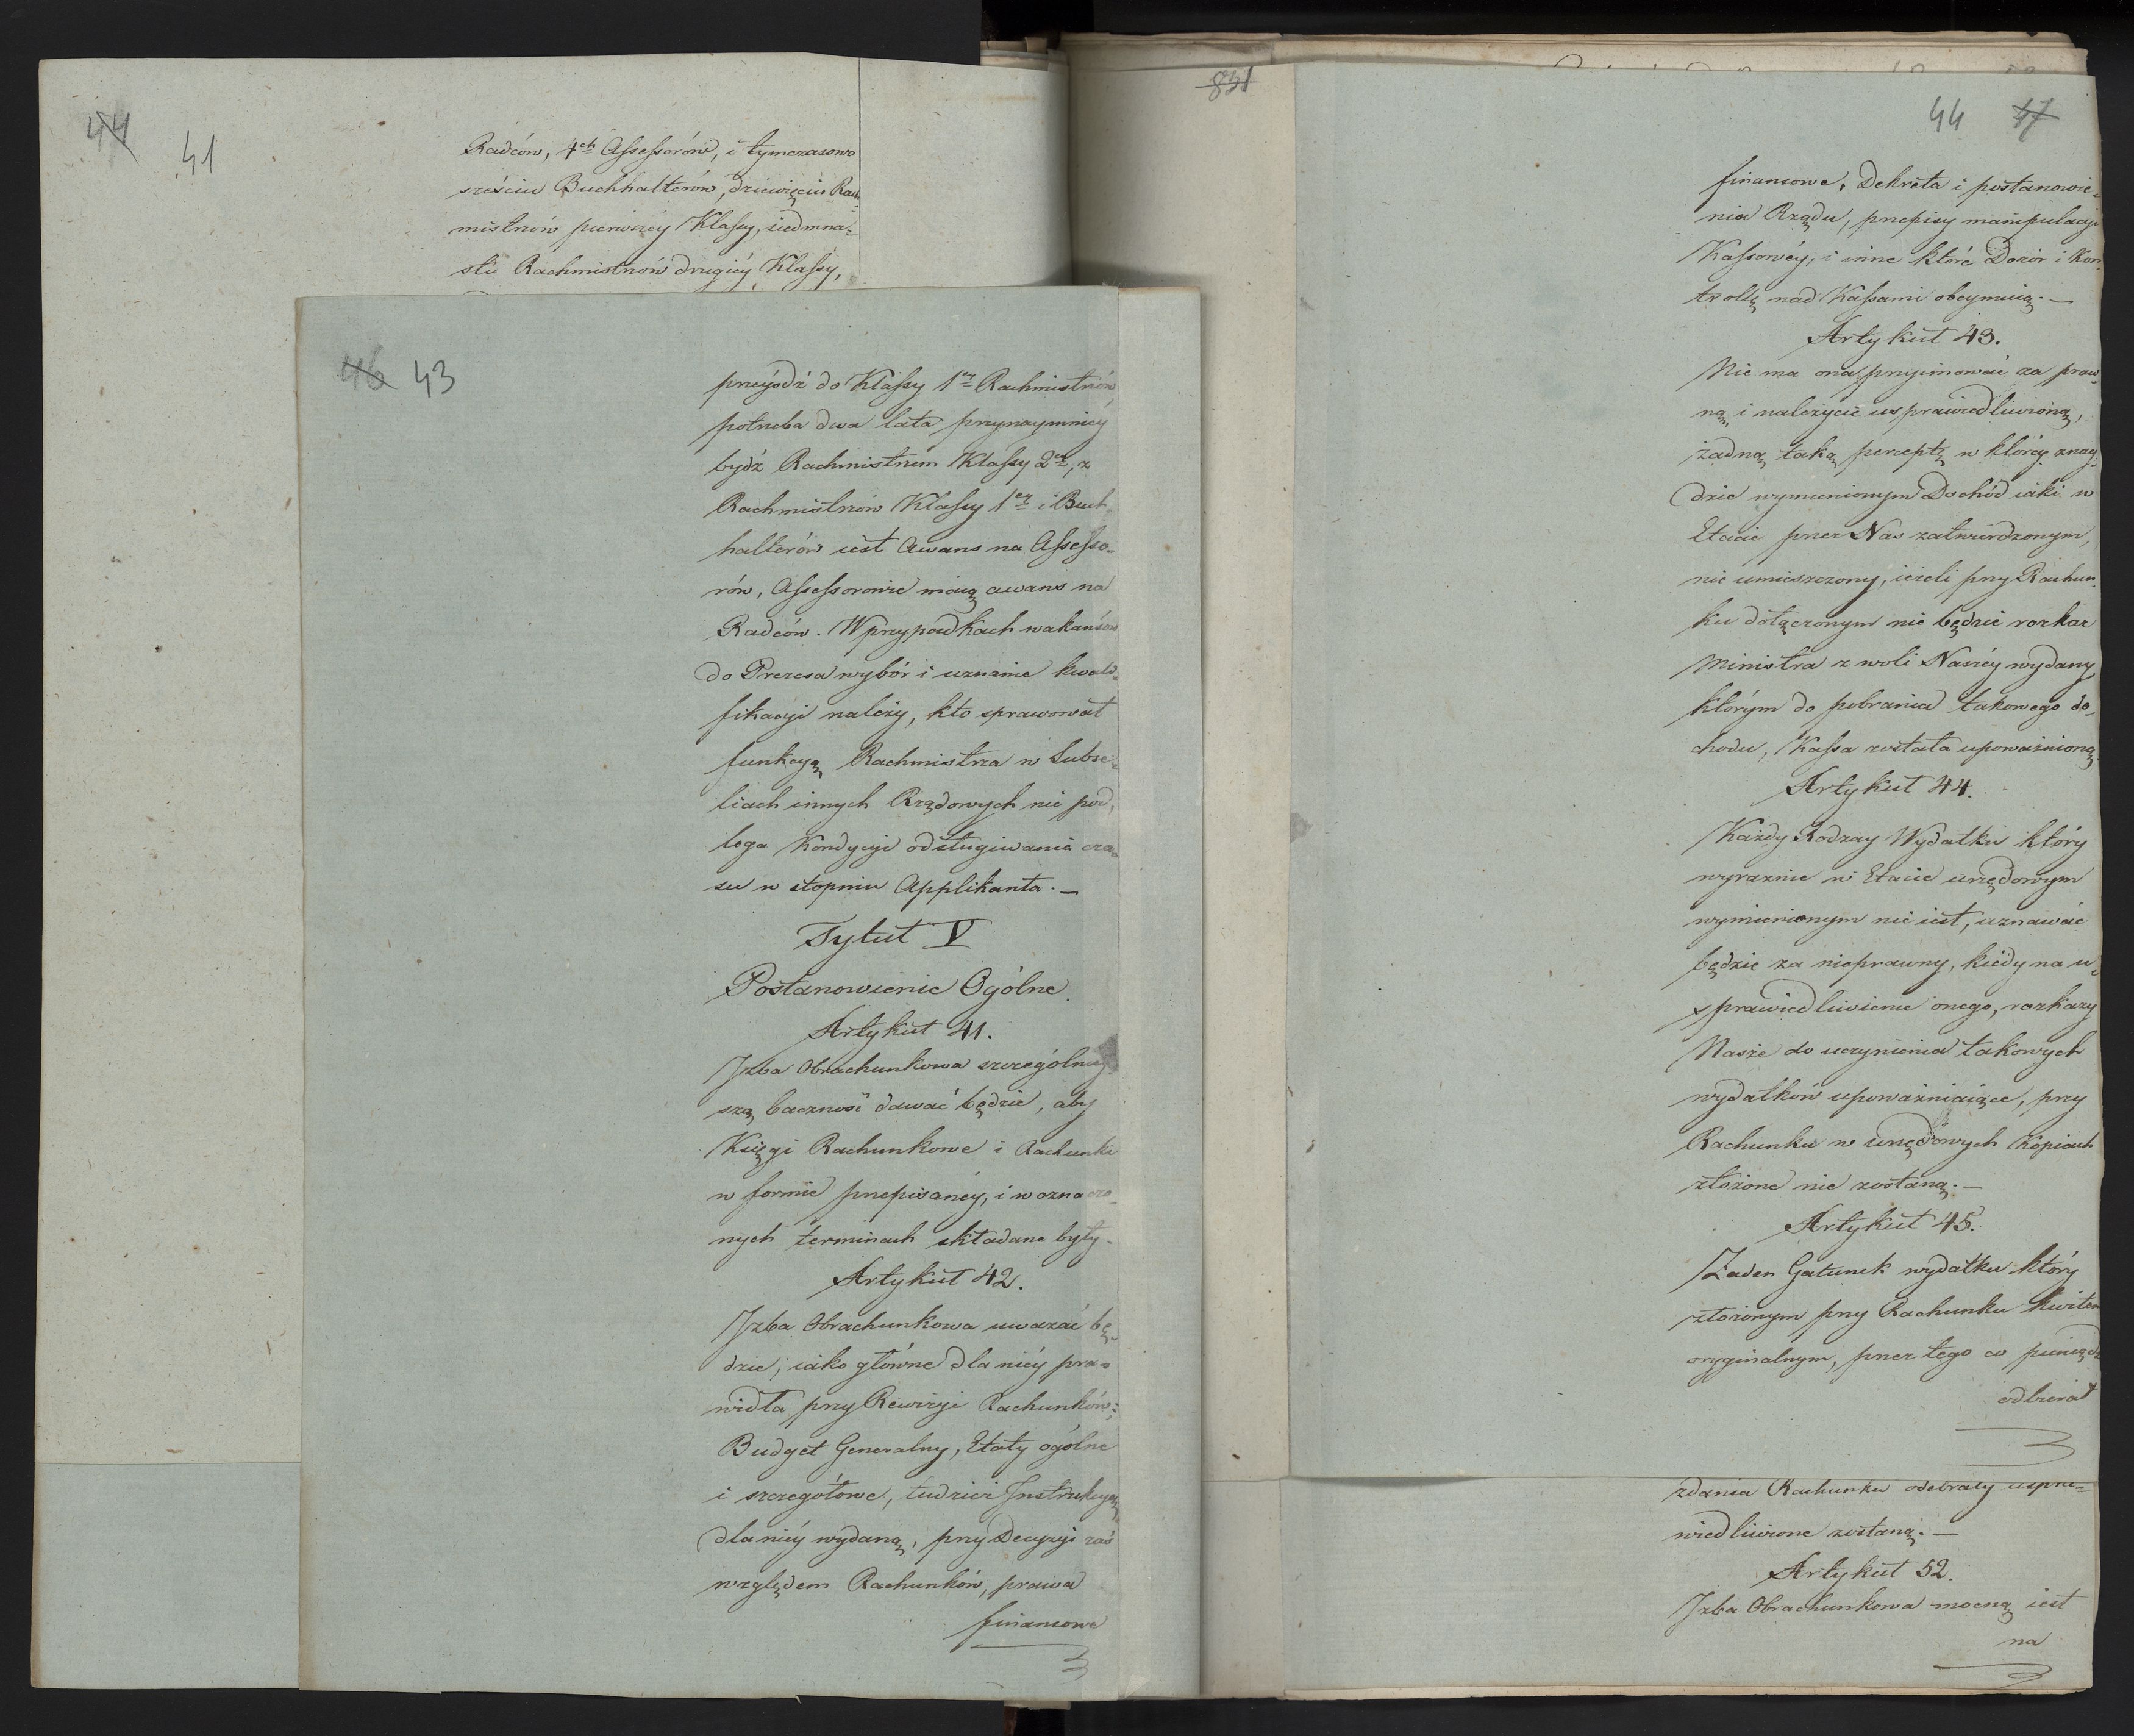 44 41
Radców, 4ch Assessorów, i tymczasowo
sześciu Buchhalterów, dziewięciu Rach,,
mistrzów pierwszéy Klassy, siedmna-
stu Rachmistrzów drugiéy Klassy,
46 43
przéyśdź do Klassy 1éy Rachmistrzów,
potrzeba dwa lata przynaymniéy
bydź Rachmistrzem Klassy 2éy, z
Rachmistrzów Klassy 1éy i Buch,,
halterów iest Awans na Assesso-
rów, Assessorowie maią awans na
Radców. W przypadkach wakansów
do Prezesa wybór i uznanie kwali-
fikacyi należy, kto sprawował
funkcyą Rachmistrza w Subse-
liach innych Rządowych nie pod,,
lega Kondycyi odsługiwania cza-
su w stopniu Applikanta. —
Tytuł V
Postanowienie Ogólne.
Artykuł 41.
Izba Obrachunkowa szczególniéy-
szą baczność dawać będzie, aby
Księgi Rachunkowe i Rachunki
w formie przepisanéy, i w oznaczo-
nych terminach składane były.
Artykuł 42.
Izba Obrachunkowa uważać bę-
dzie; iako główne dla niéy pra-
widła przy Rewizyi Rachunków:
Budget Generalny, Etaty ogólne
i szczegółowe, tudzież Instrukcyą
dla niéy wydaną, przy Decyzyi zaś
względem Rachunków, prawa
finansowe
851
44 47
finansowe, Dekreta i postanowie-
nia Rządu, przepisy manipulacyi
Kassowéy, i inne które Dozór i Kon-
trollę nad Kassami obeymuią. —
Artykuł 43.
Nie ma ona przyimować za praw-
ną i należycie usprawiedliwioną,
żadną taką perceptę w któréy znay-
dzie wymienionym Dochód iaki w
Etacie przez Nas zatwierdzonym,
nie umieszczony, ieżeli przy Rachun-
ku dołączonym nie będzie rozkaz
Ministra z woli Naszéy wydany,
którym do pobrania takowego do-
chodu, Kassa została upoważnioną.
Artykuł 44.
Każdy Rodzay Wydatku który
wyraznie w Etacie urzędowym
wymienionym nie iest, uznawać
będzie za nieprawny, kiédy na u-
sprawiedliwienie onego, rozkazy
Nasze do uczynienia takowych
wydatków upoważniaiące, przy
Rachunku w urzędowych Kopiach
złożone nie zostaną. —
Artykuł 45.
Żaden Gatunek wydatku który
złożonym przy Rachunku kwitem
oryginalnym, przez tego co pieniądz
odbierał
zdania Rachunku odebrały uspra-
wiedliwione zostaną. —
Artykuł 52.
Izba Obrachunkowa mocną iest
na